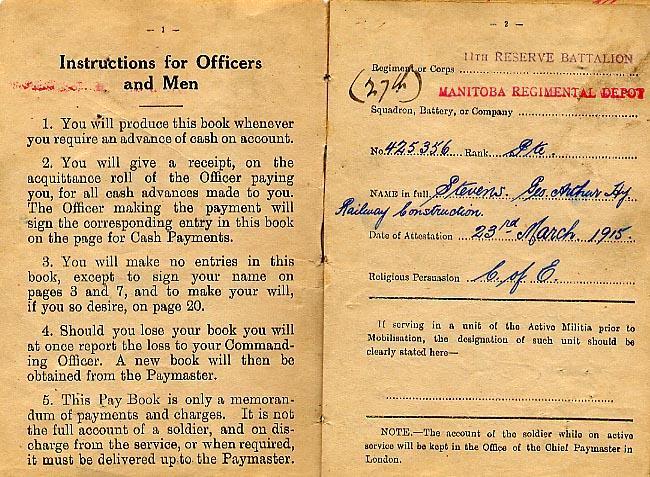 – 1 –
Instructions for Officers
and Men
1. You will produce this book whenever
you require an advance of cash on account.
2. You will give a receipt, on the
acquittance roll of the Officer paying
you, for all cash advances made to you.
The Officer making the payment will
sign the corresponding entry in this book
on the page for Cash Payments.
3. You will make no entries in this
book, except to sign your name on
pages 3 and 7, and to make your will,
if you so desire, on page 20.
4. Should you lose your book you will
at once report the loss to your Command-
ing Officer. A new book will then be
obtained from the Paymaster.
5. This Pay Book is only a memoran-
dum of payments and charges. It is not
the full account of a soldier, and on dis-
charge from the service, or when required,
it must be delivered up to the Paymaster.
– 2 –
11TH RESERVE BATTALION
Regiment or Corps
(27th) MANITOBA REGIMENTAL DEPOT
Squadron, Battery, or Company
No. 425356 Rank Pte.
NAME in full, Stevens. Geo. Arthur Hy
Railway Construction.
Date of Attestation 23rd March 1915
Religious Persuasion C. of E.
If serving in a unit of the Active Militia prior to
Mobilisation, the designation of such unit should be
clearly stated here—
NOTE.—The account of the soldier while on active
service will be kept in the Office of the Chief Paymaster in
London.